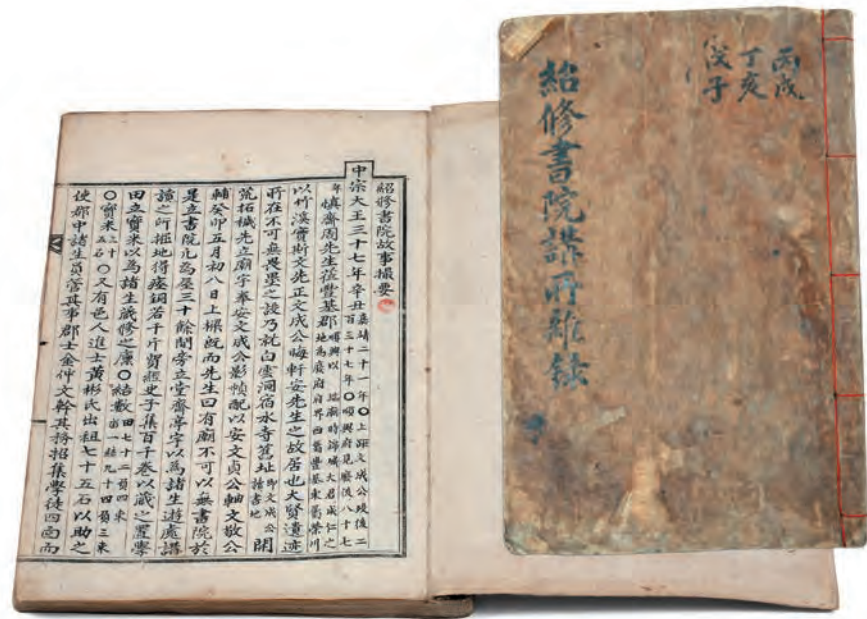 丙戌
丁亥
戊子
紹修書院講所雜錄
紹修書院故事撮要
中宗大王三十七年辛丑嘉靖二十一年〇上距文成公歿後二百三十七年〇順興府見廢後八十七
年愼齋周先生莅豐基郡順興以端廟時錦城大君成仁之地爲廢府府界西舊豐基東舊榮川
以竹溪實斯文先正文成公晦軒安先生之故居也大賢遺迹
所在不可無畏墨之設乃就白雲洞宿水寺舊址卽文成公讀書地開
荒拓穢先立廟宇奉安文成公影幀配以安文貞公軸文敬公
輔癸卯五月初八日上樑旣而先生曰有廟不可以無書院於
是立書院凡爲屋三十餘間旁立堂齋亭宇以爲諸生遊處講
讀之所掘地得瘞銅若干斤貿經史子集百千卷以藏之置學
田立寶米以爲諸生藏修之廩〇結數田七十二負四束畓一結九十四負三束
〇寶米二十五石〇又有色人進士黃彬氏出租七十五石以助之
使郡中諸生員管其事郡士金仲文幹其務招集學徒四面而